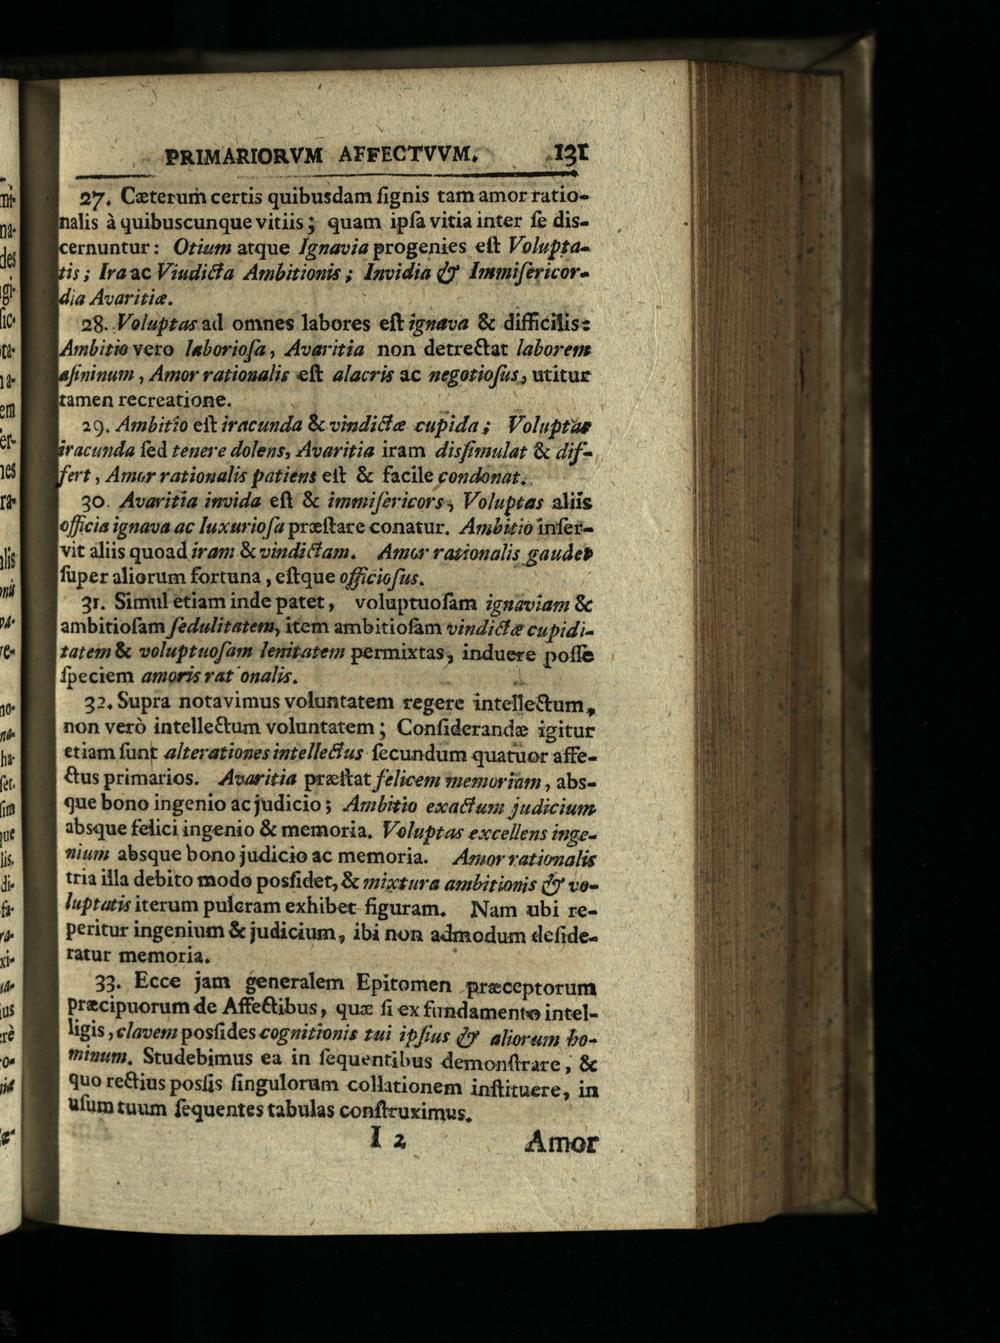 PRIMARIORVM AFFECTVVM. 131
27. Cæterum certis quibusdam ſignis tam amor ratio-
nalis à quibuscunque vitiis; quam ipſa vitia inter ſe dis-
cernuntur: Otium atque Ignavia progenies eſt Volupta-
tis; Ira ac Viudicta Ambitionis; Invidia & Immiſericor-
dia Avaritiæ.
28. Voluptas ad omnes labores eſt ignava & difficilis:
Ambitio vero laborioſa, Avaritia non detrectat laborem
aſininum, Amor rationalis eſt alacris ac negotioſus, utitur
tamen recreatione.
29. Ambitio eſt iracunda & vindictæ cupida; Voluptas
iracunda ſed tenere dolens, Avaritia iram disſimulat & dif-
fert, Amor rationalis patiens eſt & facile condonat.
30. Avaritia invida eſt & immiſericors, Voluptas aliis
officia ignava ac luxurioſa præſtare conatur. Ambitio inſer-
vit aliis quoad iram & vindictam. Amor rationalis gaudet
ſuper aliorum fortuna, eſtque officioſus.
31. Simul etiam inde patet, voluptuoſam ignaviam &
ambitioſam ſedulitatem, item ambitioſam vindictæ cupidi-
tatem & voluptuoſam lenitatem permixtas, induere poſſe
ſpeciem amoris rat onalis.
32. Supra notavimus voluntatem regere intellectum,
non verò intellectum voluntatem; Conſiderandæ igitur
etiam ſunt alterationes intellectus ſecundum quatuor affe-
ctus primarios. Avaritia præſtat felicem memoriam, abs-
que bono ingenio ac judicio; Ambitio exactum judicium
absque felici ingenio & memoria. Voluptas excellens inge-
nium absque bono judicio ac memoria. Amor rationalis
tria illa debito modo posſidet, & mixtura ambitionis & vo-
luptatis iterum pulcram exhibet figuram. Nam ubi re-
peritur ingenium & judicium, ibi non admodum deſide-
ratur memoria.
33. Ecce jam generalem Epitomen præceptorum
præcipuorum de Affectibus, quæ ſi ex fundamento intel-
ligis, clavem posſides cognitionis tui ipſius & aliorum ho-
minum. Studebimus ea in ſequentibus demonſtrare, &
quo rectius posſis ſingulorum collationem inſtituere, in
uſum tuum ſequentes tabulas conſtruximus.
I 2 Amor